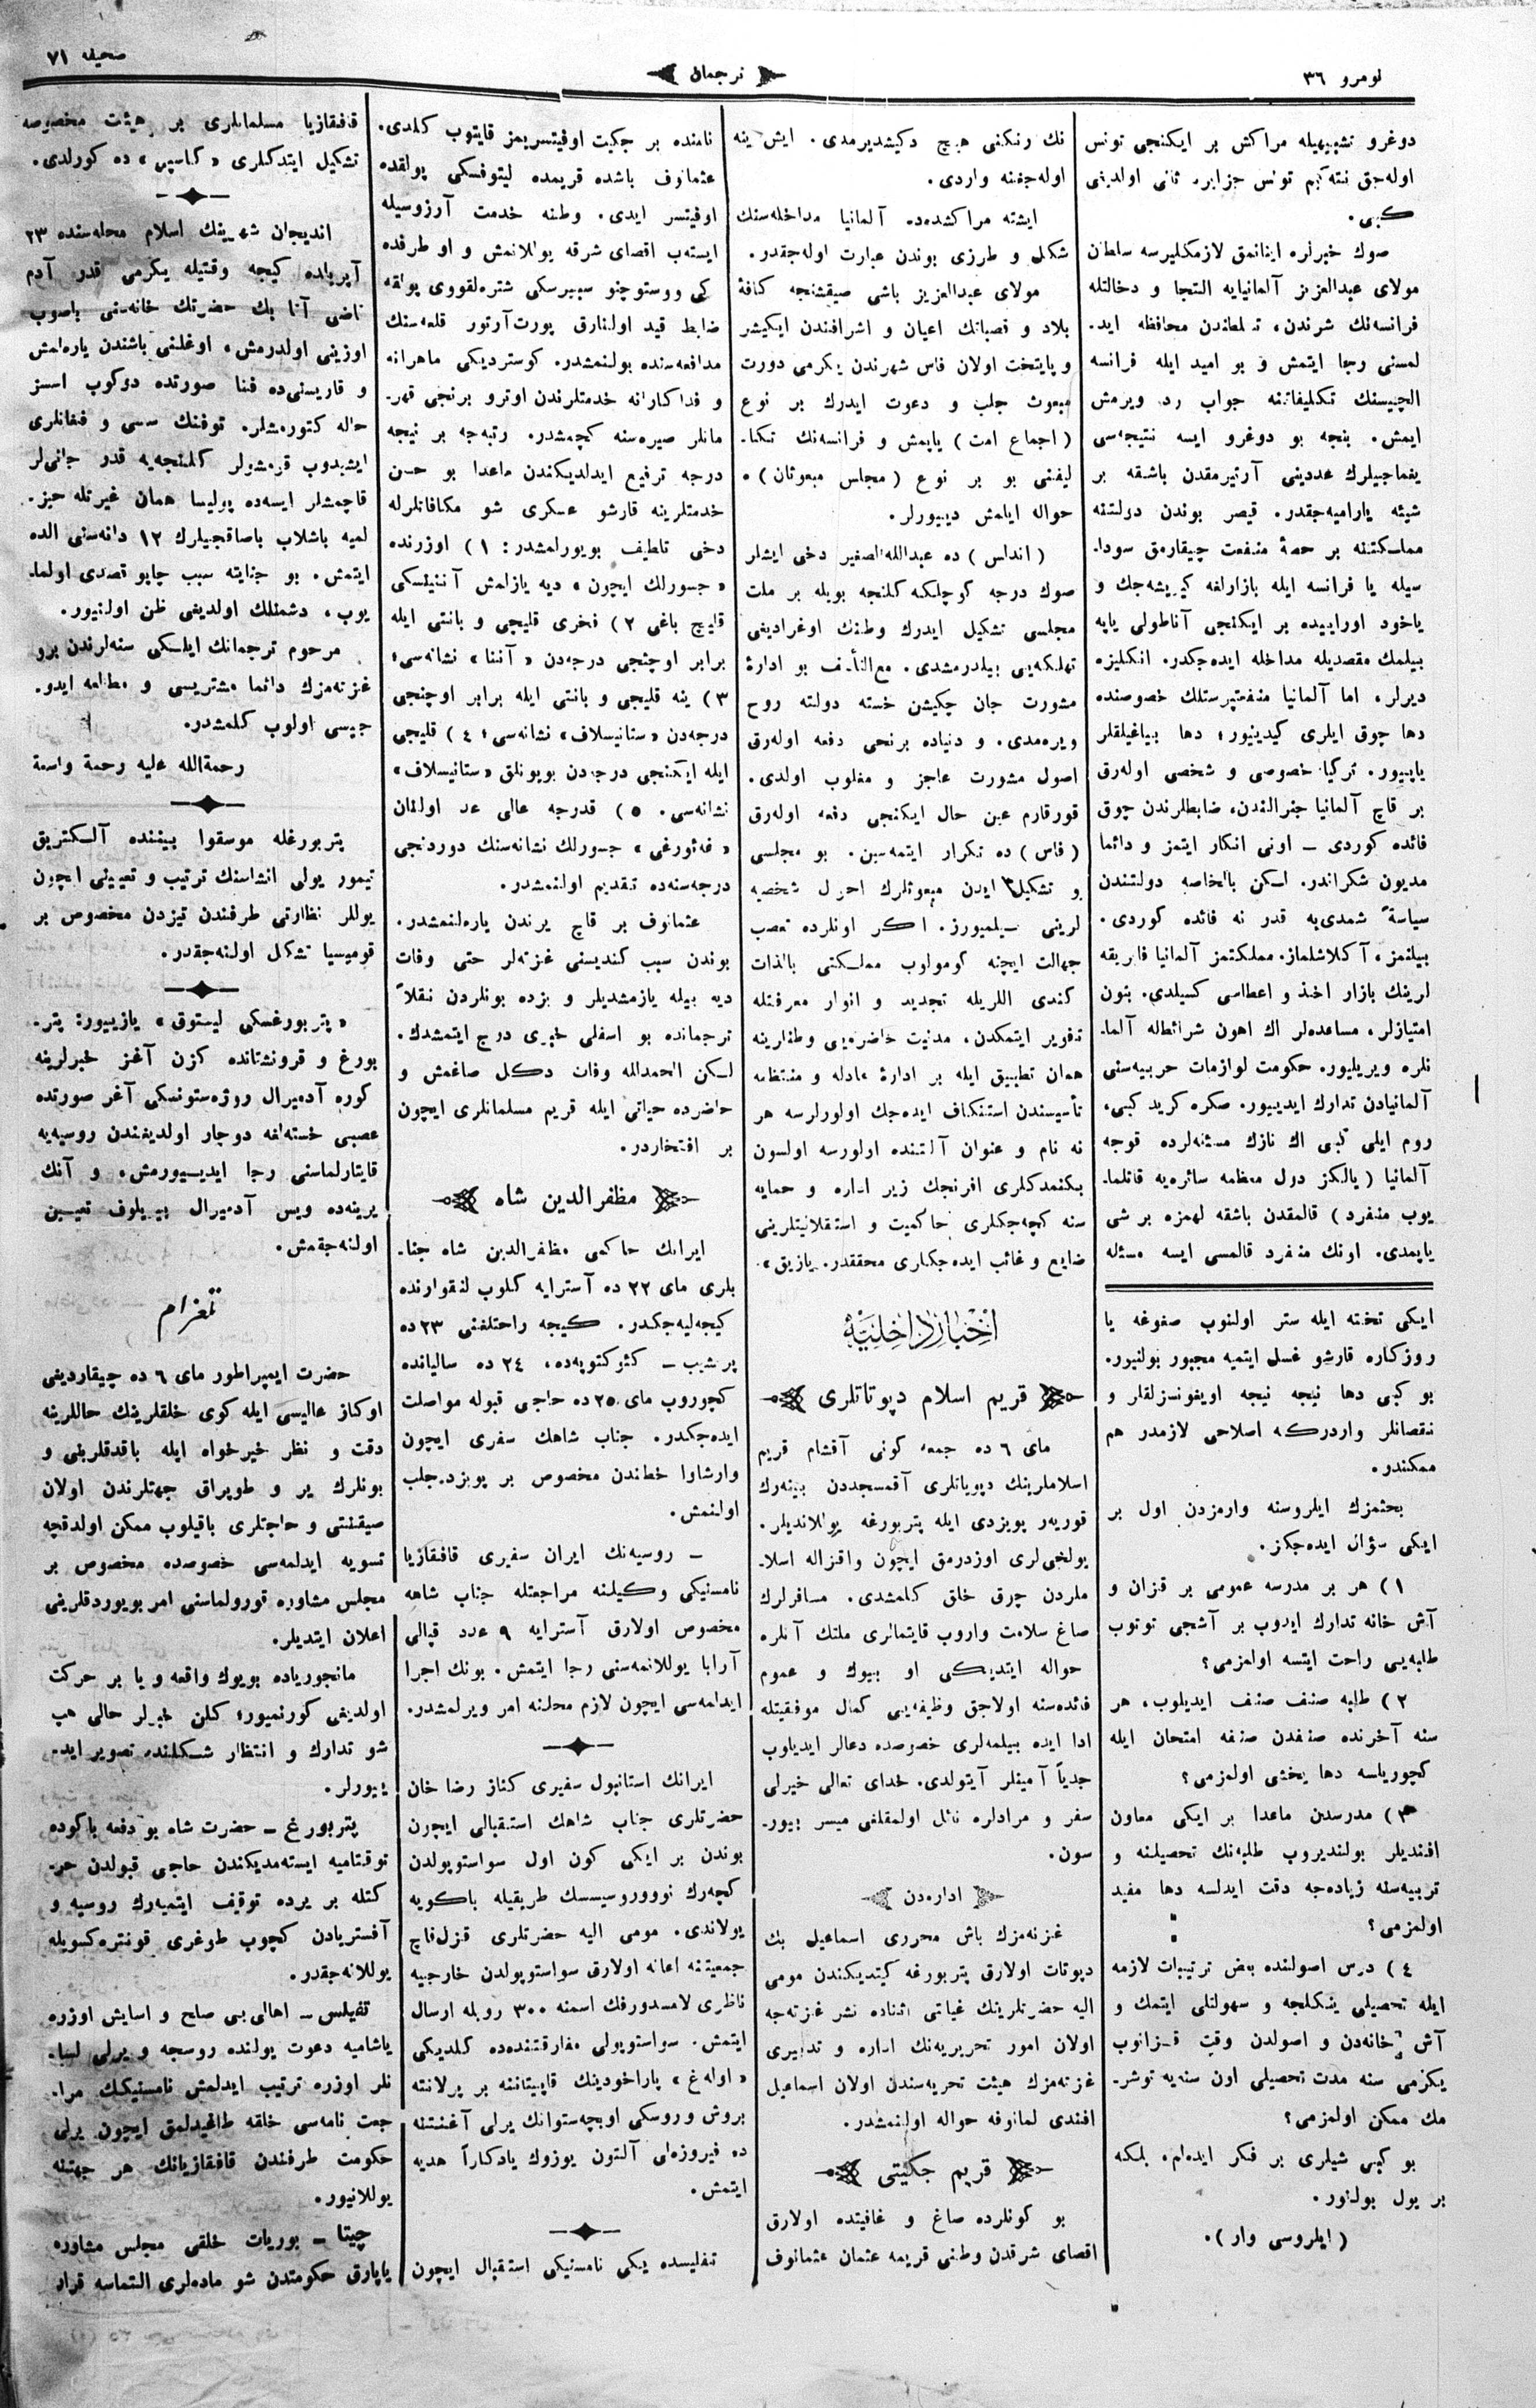 نومرو ٣٦
ترجمان
صحیفه ٧١
دوغرو تشبیهیله مراكش بر ایكنجی تونس
اوله‌جق نته‌كیم تونس جزایره ثانی اولدیغی
كبی.
صوك خبرلره اینانمق لازمكلیرسه سلطان
مولای عبدالعزیز آلمانیایه التجا و دخالتله
فرانسه‌نك شرندن، تسلطندن محافظه اید.
لمسنی رجا ایتمش و بو امید ایله فرانسه
الچیسنك تكلیفاتنه جواب رد ویرمش
ایمش. بنجه بو دوغرو ایسه نتیجه‌سی
یغماجیلرك عددینی آرتیرمقدن باشقه بر
شیئه یارامیه‌جقدر. قیصر بوندن دولتنه
مملكتنه بر حصهٔ منفعت چیقارمق سودا-
سیله یا فرانسه ایله بازارلغه كیریشه‌جك و
یاخود اورابیده بر ایكنجی آناطولی یاپه
بیلمك مقصدیله مداخله ایده‌جكدر. انكلیزه
دیرلر، اما آلمانیا منفعتپرستلك خصوصنده
دها چوق ایلری كیدینیور؛ دها بیاغیلقلر
یاپیور. تركیا خصوصی و شخصی اوله‌رق
بر قاچ آلمانیا جنرالندن، ضابطلرندن چوق
فائده كوردی ـ اونی انكار ایتمز و دائما
مدیون شكراندر. لسكن بالخاصه دولتندن
سیاسةً شمدی‌یه قدر نه فائده كوردی.
بیلنمز، آكلاشلماز. مملكتمز آلمانیا فابریقه
لرینك بازار اخذ و اعطاسی كسیلدی. بتون
امتیازلر، مساعده‌لر اك اهون شرائطله آلما-
نلره ویریلیور. حكومت لوازمات حربیه‌سنی
آلمانیادن تدارك ایدییور. صكره كرید كبی،
روم ایلی كبی اك نازك مسئله‌لرده قوجه
آلمانیا ( یالكز دول معظمه سائره‌یه قاتلما-
یوب منفرد ) قالمقدن باشقه لهمزه بر شی
یاپمدی. اونك منفرد قالمسی ایسه مسئله
ایكی تخته ایله ستر اولنوب صغوغه یا
روزكاره قارشو غسل ایتمیه مجبور بولنیور.
بو كبی دها نیجه نیجه اویغونسزلقلر و
نقصانلر واردركه اصلاحی لازمدر هم
ممكندو.
بحثمزك ایلروسنه وارمزدن اول بر
ایكی سؤال ایده‌جكز.
١) هر بر مدرسه عمومی بر قزان و
آش خانه تدارك ایدوب بر آشجی توتوب
طلبه‌یی راحت ایتسه اولمزمی؟
٢) طلبه صنف صنف ایدیلوب، هر
سنه آخرنده صنفدن صنفه امتحان ایله
كچوریلسه دها یخشی اولمزمی؟
٣) مدرسدن ماعدا بر ایكی معاون
افندیلر بولندیروب طلبه‌نك تحصیلنه و
تربیه‌سنه زیاده‌جه دقت ایدلسه دها مفید
اولمزمی؟
٤) درس اصولنده بعض ترتیبات لازمه
ایله تحصیلی ینكلجه و سهولتلی ایتمك و
آش خانه‌دن و اصولدن وقت قزانوب
یكرمی سنه مدت تحصیلی اون سنه‌یه توشر-
مك ممكن اولمزمی؟
بو كبی شیلری بر فكر ایده‌لم، بلمكنه
بر یول بولنور.
( ایلروسی وار ).
نك رنكنی هیچ دكیشدیرمدی. ایش ینه
اوله‌جغنه واردی.
ایشته مراكشده‌ده آلمانیا مداخله‌سنك
شكل و طرزی بوندن عبارت اوله‌جقدر.
مولای عبدالعزیز باشی صیقشنجه كافهٔ
بلاد و قصباتك اعیان و اشرافندن ایكیشر
و پایتخت اولان فاس شهرندن یكرمی دورت
مبعوث جلب و دعوت ایدرك بر نوع
( اجماع امت ) یاپمش و فرانسه‌نك تكا-
لیفنی بو بر نوع ( مجلس مبعوثان ) ه
حواله ایلمش دیییورلر.
( اندلس ) ده عبدالله‌الصغیر دخی ایشلر
صوك درجه كوچلكه كلنجه بویله بر ملت
مجلسی تشكیل ایدرك وطنك اوغرادیغی
تهلكه‌یی بیلدرمشدی. مع‌التأسف بو ادارهٔ
مشورت جان چكیشن خسته دولته روح
ویره‌مدی. و دنیاده برنجی دفعه اوله‌رق
اصول مشورت عاجز و مغلوب اولدی.
قورقارم عین حال ایكنجی دفعه اوله‌رق
( فاس ) ده تكرار ایتمه‌سین. بو مجلسی
و تشكیل ایدن مبعوثلرك احوال شخصیه
لرینی بیلمیورز. اكر اونلرده تعصب
جهالت ایچنه كومولوب مملكتی بالذات
كندی اللریله تجدید و انوار معرفتله
تنویر ایتمكدن، مدنیت حاضره‌یی وطنلرینه
همان تطبیق ایله بر ادارهٔ عادله و منتظمه
تأسیسندن استنكاف ایده‌جك اولورلرسه هر
نه نام و عنوان آلتنده اولورسه اولسون
بكنمدكلری افرنجك زیر اداره و حمایه
سنه كچه‌جكلری حاكمیت و استقلالیتلرینی
ضایع و غائب ایده‌جكلری محققدر. یازیق».
اخبار داخلیه
قریم اسلام دپوتاتلری
مای ٦ ده جمعه كونی آقشام قریم
اسلاملرینك دپوتاتلری آقمسجددن بینه‌رك
قوریه‌ر پویزدی ایله پتربورغه یوللاندیلر.
یولجی‌لری اوزدرمق ایچون واقزاله اسلا-
ملردن چوق خلق كلمشدی. مسافرلرك
صاغ سلامت واروب قایتمالری ملتك آنلره
حواله ایتدیكی او بیوك و عموم
فائده‌سنه اولاجق وظیفه‌یی كمال موفقیتله
ادا ایده بیلمه‌لری خصوصده دعالر ایدیلوب
جدیاً آمینلر آیتولدی. خدای تعالی خیرلی
سفر و مرادلره نائل اولمقلغی میسر بیور-
سون.
اداره‌دن
غزته‌مزك باش محرری اسماعیل بك
دپوتات اولارق پتربورغه كیتدیكندن مومی
الیه حضرتلرینك غیابی اثناده نشر غزته‌جه
اولان امور تحریریه‌نك اداره و تدبیری
غزته‌مزك هیئت تحریه‌سندن اولان اسماعیل
افندی لمانوفه حواله اولنمشدر.
قریم جكیتی
بو كونلرده صاغ و عافیتده اولارق
اقصای شرقدن وطنی قریمه عثمان عثمانوف
نامنده بر جكیت اوفیتسریمز قایتوب كلدی.
عثمانوف باشده قریمده لیتوفسكی پولقده
اوفیتسر ایدی. وطنه خدمت آرزوسیله
ایسته‌ب اقصای شرقه یوللانمش و او طرفده
كی ووستوچنو سیبیرسكی شتره‌لقووی پولقه
ضابط قید اولنارق پورت آرتور قلعه‌سنك
مدافعه‌سنده بولنمشدر. كوستردیكی ماهرانه
و فداكارانه خدمتلرندن اوترو برنجی قهر-
مانلر صیره‌سنه كچمشدر. رتبه‌جه بر نیجه
درجه ترفیع ایدلدیكندن ماعدا بو حسن
خدمتلرینه قارشو عسكری شو مكافاتلرله
دخی تلطیف بویورلمشدر: ١) اوزرنده
«جسورلك ایچون» دیه یازلمش آننینسكی
قلیچ باغی ٢) فخری قلیجی و بانتی ایله
برابر اوچنجی درجه‌دن «آننا» نشانه‌سی؛
٣) ینه قلیجی و بانتی ایله برابر اوچنجی
درجه‌دن «ستانیسلاف» نشانه‌سی؛ ٤) قلیجی
ایله ایكنجی درجه‌دن بویونلق «ستانیسلاف»
نشانه‌سی. ٥) قدرجه عالی عد اولنمان
«غه‌ئورغی» جسورلك نشانه‌سنك دوردنجی
درجه‌سنه‌ده تقدیم اولنمشدر.
عثمانوف بر قاچ یرندن یاره‌لنمشدر.
بوندن سبب كندیسنی غزته‌لر حتی وفات
دیه بیله یازمشدیلر و بزده بونلردن نقلاً
ترجمانده بو اسفلی خبری درج ایتمشدك.
لسكن الحمدالله وفات دكل صاغمش و
حاضرده حیاتی ایله قریم مسلمانلری ایچون
بر افتخاردر.
مظفرالدین شاه
ایرانك حاكمی مظفرالدین شاه جنا-
بلری مای ٢٢ ده آسترایه كلوب لنقوارنده
كیجه‌لیه‌جكدر. كیجه راحتلغنی ٢٣ ده
پرشیب ـ كئوكتوپه‌ده، ٢٤ ده سالیانده
كچوروب مای ٢٥ ده حاجی قبوله مواصلت
ایده‌جكدر. جناب شاهك سفری ایچون
وارشاوا خطندن مخصوص بر پویزد جلب
اولنمش.
ـ روسیه‌نك ایران سفیری قافقازیا
نامسنیكی وكیلنه مراجعتله جناب شاهه
مخصوص اولارق آسترایه ٩ عدد قپالی
آرابا یوللانمه‌سنی رجا ایتمش. بونك اجرا
ایدلمه‌سی ایچون لازم محلنه امر ویرلمشدر.
ایرانك استانبول سفیری كناز رضا خان
حضرتلری جناب شاهك استقبالی ایچون
بوندن بر ایكی كون اول سواستوپولدن
كچه‌رك نووروسیسسك طریقیله باكویه
یولاندی. مومی الیه حضرتلری قزل‌فاچ
جمعیتنه اعانه اولارق سواستوپولدن خارجیه
ناظری لامسدورفك اسمنه ٣٠٠ روبله ارسال
ایتمش. سواستوپولی مفارقتنده‌ده كلدیكی
«اولەغ» پاراخودینك قاپیتاننه بر برلانته
بروش وروسكی اوبچه‌ستوانك یرلی آغنتنه
ده فیروزه‌لی آلتون یوزوك یادكاراً هدیه
ایتمش.
تفلیسده یكی نامسنیكی استقبال ایچون
قافقازیا مسلمانلری بر هیئت مخصوصه
تشكیل ایتدكلری «كاسپی» ده كورلدی.
اندیجان شهرینك اسلام محله‌سنده ٢٣
آپریلده كیجه وقتیله یكرمی قدر آدم
قاضی آتا بك حضرتك خانه‌سنی باصوب
اوزینی اولدرمش، اوغلنی باشندن یاره‌لمش
و قاریسنی‌ده فنا صورتده دوكوب اسسز
حاله كتورمشلر. توفنك سسی و فغانلری
ایشیدوب قومشولر كلنجه‌یه قدر جانی‌لر
قاچمشلر ایسه‌ده پولیسا همان غیرتله حیز-
لمیه باشلاب باصاقجیلرك ١٢ دانه‌سنی الده
ایتمش. بو جنایته سبب چاپو قصدی اولما-
یوب، دشمنلك اولدیغی ظن اولنیور.
مرحوم ترجمانك ایلسكی سنه‌لرندن برو
غزته‌مزك دائما مشتریسی و مطالعه ایدو-
جیسی اولوب كلمشدر.
رحمة‌الله علیه رحمة واسعة
پتربورغله موسقوا بیننده آلسكتریق
تیمور یولی انشاسنك ترتیب و تعیینی ایچون
یوللر نظارتی طرفندن تیزدن مخصوص بر
قومیسیا تشكل اولنه‌جقدر.
«پتربورغسكی لیستوق» یازییور: پتر-
بورغ و قرونشتاتده كزن آغز خبرلرینه
كوره آدمیرال روژه‌ستونسكی آغر صورتده
عصبی خسته‌لغه دوچار اولدیغندن روسیه‌یه
قایتارلماسنی رجا ایدییورمش، و آنك
یرینه‌ده ویس آدمیرال بیریلوف تعیین
اولنه‌جقمش.
تلغرام
حضرت ایمپراطور مای ٦ ده چیقاردیغی
اوكاز عالیسی ایله كوی خلقلرینك حاللرینه
دقت و نظر خیرخواه ایله باقدقلرینی و
بونلرك یر و طوپراق جهتلرندن اولان
صیقنتی و حاجتلری باقیلوب ممكن اولدقچه
تسویه ایدلمه‌سی خصوصده مخصوص بر
مجلس مشاوره قورولماسنی امر بویوردقلرینی
اعلان ایتدیلر.
مانجوریاده بویوك واقعه و یا بر حركت
اولدیغی كورنمیور؛ كلن خبرلر حالی هپ
شو تدارك و انتظار شكلنده تصویر اید-
ییورلر.
پتربورغ ـ حضرت شاه بو دفعه باكوده
توقتامیه ایسته‌مدیكندن حاجی قبولدن حر-
كتله بر یرده توقیف ایتمیه‌رك روسیه و
آفستریادن كچوب طوغری قونتره‌كسویله
یوللانه‌جقدر.
تفیلس ـ اهالی‌یی صلح و اسایش اوزره
یاشامیه دعوت یولنده روسجه و یرلی لسا-
نلر اوزره ترتیب ایدلمش نامسنیكك مرا-
جعت نامه‌سی خلقه طاغیدلمق ایچون یرلی
حكومت طرفندن قافقازیانك هر جهتنه
یوللانیور.
چیتا ـ بوریات خلقی مجلس مشاوره
یاپارق حكومتدن شو ماده‌لری التماسه قرار